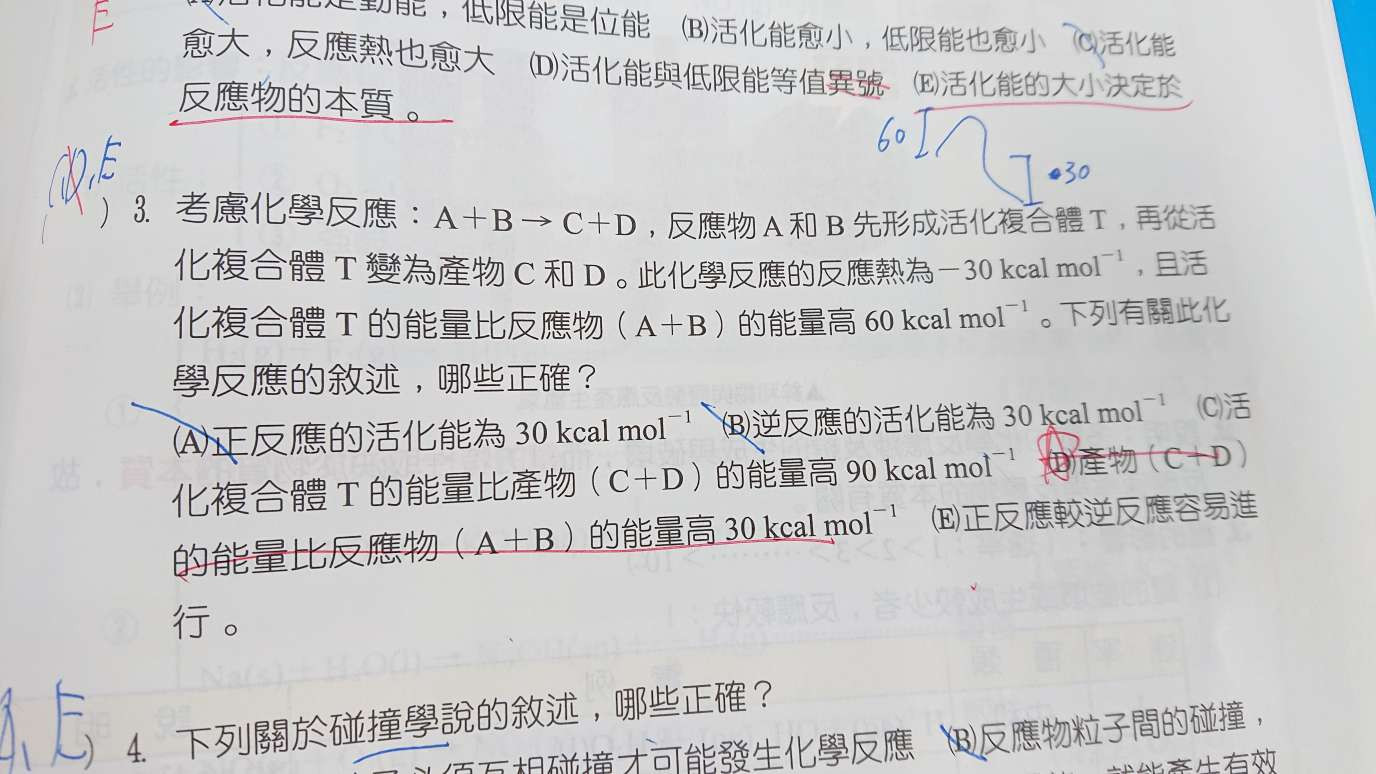 E
活化能是動能，低限能是位能　(B)活化能愈小，低限能也愈小　(C)活化能
愈大，反應熱也愈大　(D)活化能與低限能等值異號　(E)活化能的大小決定於
反應物的本質。
60
30
E
) 3. 考慮化學反應：A＋B → C＋D，反應物 A 和 B 先形成活化複合體 T，再從活
化複合體 T 變為產物 C 和 D。此化學反應的反應熱為－30 kcal mol⁻¹，且活
化複合體 T 的能量比反應物（A＋B）的能量高 60 kcal mol⁻¹。下列有關此化
學反應的敘述，哪些正確？
(A)正反應的活化能為 30 kcal mol⁻¹　(B)逆反應的活化能為 30 kcal mol⁻¹　(C)活
化複合體 T 的能量比產物（C＋D）的能量高 90 kcal mol⁻¹　(D)產物（C＋D）
的能量比反應物（A＋B）的能量高 30 kcal mol⁻¹　(E)正反應較逆反應容易進
行。
E
) 4. 下列關於碰撞學說的敘述，哪些正確？
必須互相碰撞才可能發生化學反應　(B)反應物粒子間的碰撞，
就能產生有效